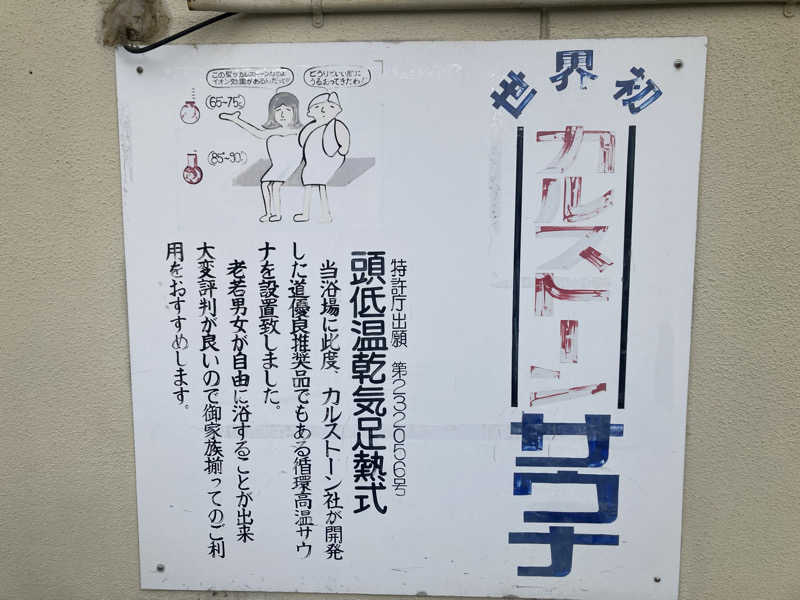 世界初
カルストーン
サウナ
特許庁出願 第232056号
頭低温乾気足熱式
当浴場に此度、カルストーン社が開発
した道優良推奨品でもある循環高温サウ
ナを設置致しました。
老若男女が自由に浴することが出来
大変評判が良いので御家族揃ってのご利
用をおすすめします。
どうりでいい肌に
うるおってきたわ!
(65~75℃)
(85~90℃)